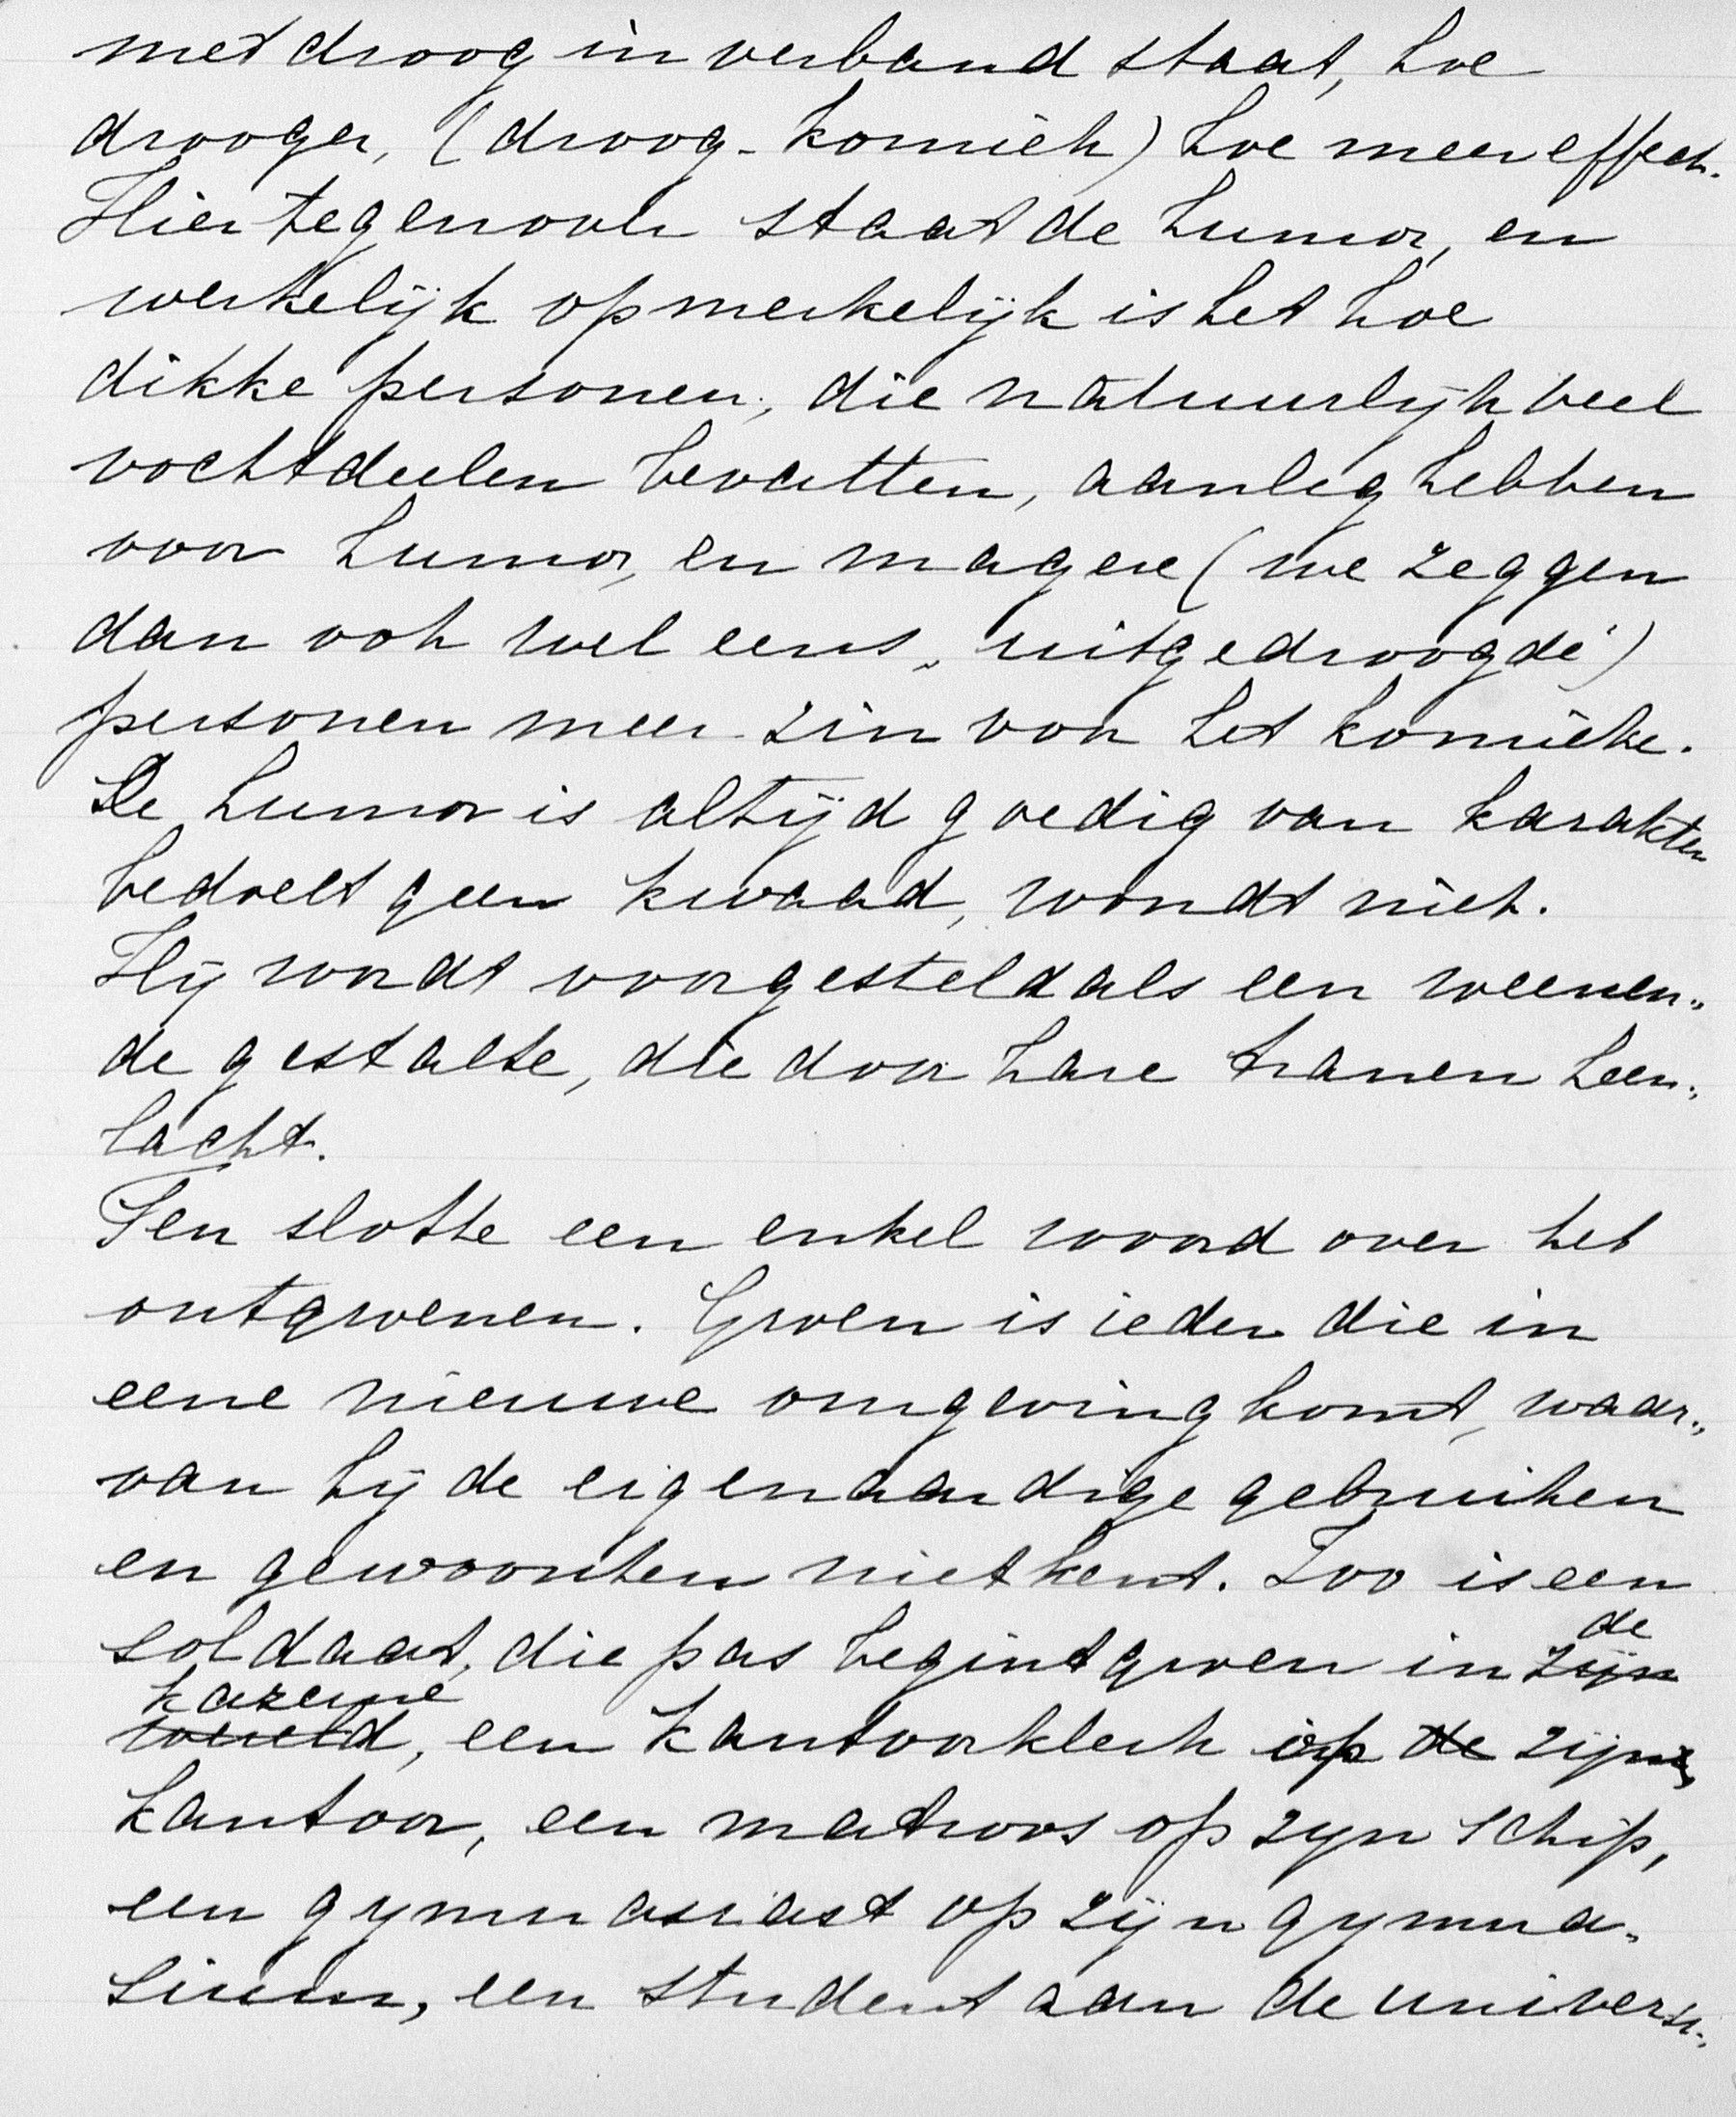 met droog in verband staat, hoe
drooger, (droog-komiek) hoe meer effect.
Hier tegenover staat de humor, en
werkelijk opmerkelijk is het hoe
dikke personen, die natuurlijk veel
vochtdeelen bevatten, aanleg hebben
voor humor, en magere (we zeggen
dan ook wel eens „uitgedroogde")
personen meer zin voor het komieke.
De humor is altijd goedig van karakter
bedoelt geen kwaad, wondt niet.
Hij wordt voorgesteld als een weenen„
de gestalte, die door hare tranen heen„
lacht.
Ten slotte een enkel woord over het
ontgroenen. Groen is ieder die in
eene nieuwe omgeving komt, waar„
van hij de eigenaardige gebruiken
en gewoonten niet kent. Zoo is een
de
soldaat, die pas begint groen in zijn
kazerne
wereld, een kantoorklerk op de zijn
kantoor, een matroos op zyn schip,
een gymnasiast op zijn gymna„
sium, een student aan de universi„